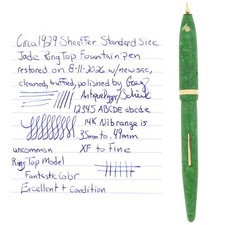 Circa 1929 Sheaffer Standard Size
Jade Ring Top Fountain Pen
restored on 8-11-2026 w/new sac,
cleaned, buffed, polished by Greg
12345 ABCDE abcde
14K Nib range is
.35mm to .49mm
uncommon XF to Fine
Ring Top Model
Fantastic Color
Excellent + Condition